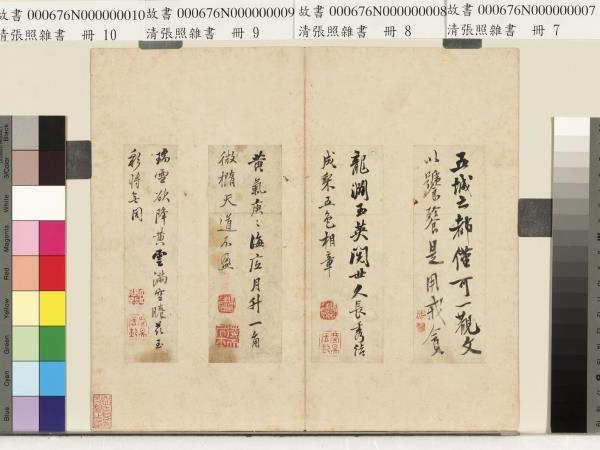 故書 000676N000000010
清張照雜書 冊 10
故書 000676N000000009
清張照雜書 冊 9
故書 000676N000000008
清張照雜書 冊 8
故書 000676N000000007
清張照雜書 冊 7
五城之都僅可一觀文
以饕餮是用戒貪
龍淵玉英閱世久長秀結
成采五色相章
黃氣庚庚海底月升一角
微橢天道不盈
瑞雪欲降黃雲滿空
彩將無同
Black
3/Color
White
Magenta
Red
Yellow
Green
Cyan
Blue